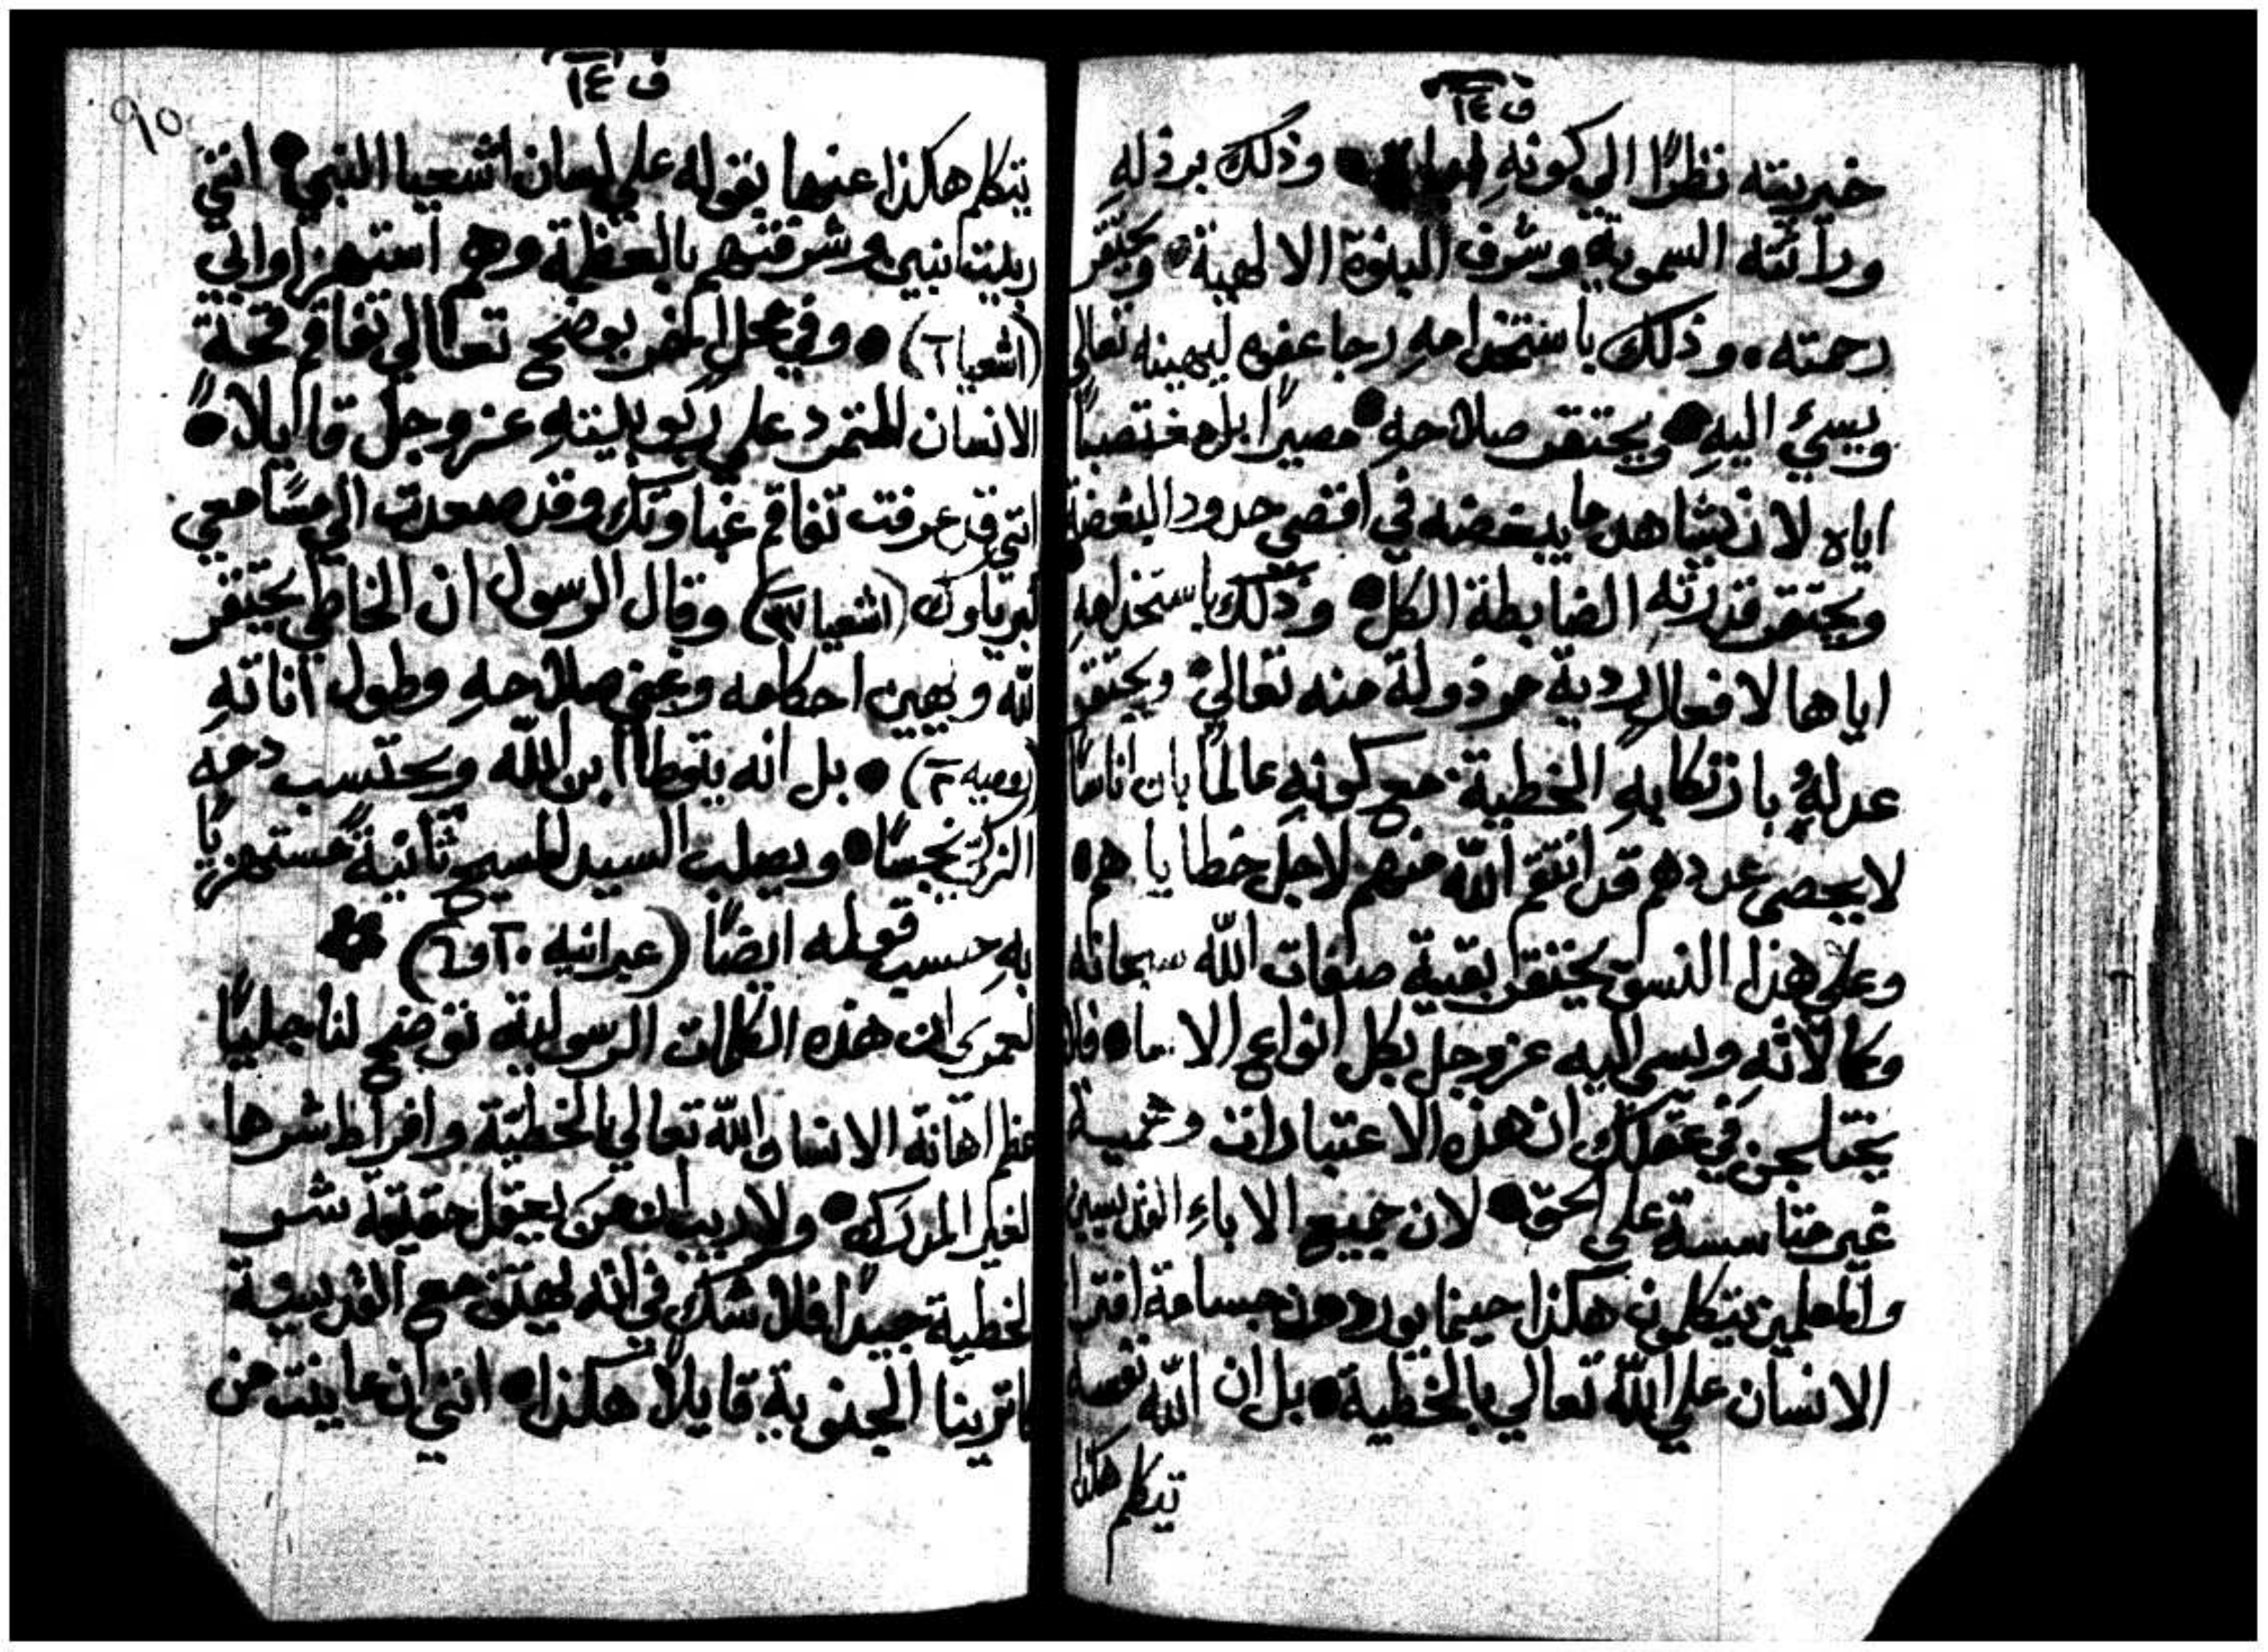 ف ١٤
خيريته نظرًا الي كونهِ وذلك برذلهِ
وراثته السموية وشرف البنوة الالهية ويحتقر
رحمته وذلك باستخدامهِ رجا عفوه ليهينه تعالي
ويسيُ اليهِ ويحتقر صلاحهِ مصيرًا بل مغتصبًا
اياه لان يشاهد ما يبغضه في اقصي حدود البغضة
ويحتقر قدرتهِ الضابطة الكل وذلك باستخدامهِ
اياها لافعال ردية مرذولة منه تعالي ويحتقر
عدلهُ بارتكابهِ الخطية مع كونهِ عالمًا بان اناسًا
لا يحصي عددهم قد انتقم اللّه منهم لاجل خطاياهم
وعلي هذا النسق يحتقر بقية صفات اللّه سبحانه
وكمالاتهِ ويسي اليه عز وجل بكل انواع الاسا فلا
يختلجن في عقلك ان هذه الاعتبارات وهمية
غير متاسسة علي الحق لان جميع الاباءِ القديسين
والمعلمين يتكلمون هكذا حينما يوردون جسامة افترا
الانسان علي اللّه تعالي بالخطية بل ان اللّه نفسه
يتكلم هكذا
٩٥
ف ١٤
يتكلم هكذا عنها بقوله علي لسان اشعيا النبي انني
ربيت بنين وشرفتهم بالعظمة وهم استهزاوا بي
(اشعيا ٦) وفي محل اخر يوضح تعالي تفاقم قحة
الانسان المتمرد علي ربوبيتهِ عز وجل قايلاً
انني قد عرفت تفاقم غباوتك وقد صعدت الي مسامعي
كبرياوك (اشعيا ٣٧) وقال الرسول ان الخاطي يحتقر
اللّه ويهين احكامه وغني صلاحهِ وطول اناتهِ
(روميه ٢) بل انه يتوطا ابن اللّه ويحتسب دمه
الزكي نجسًا ويصلب السيد المسيح ثانيةً مستهزيًا
بهِ حسب قوله ايضًا (عبرانيه ١٠ و٦)
لعمري ان هذه الكلمات الرسولية توضح لنا جليًا
عظم اهانة الانسان اللّه تعالي بالخطية وافراط شرها
الغير المدرك ولا ريب ان من يعقل حقيقة شر
الخطية جيدًا فلا شك في انه يهتف مع القديسة
كاترينا الجنوية قايلاً هكذا انني ان عاينت من